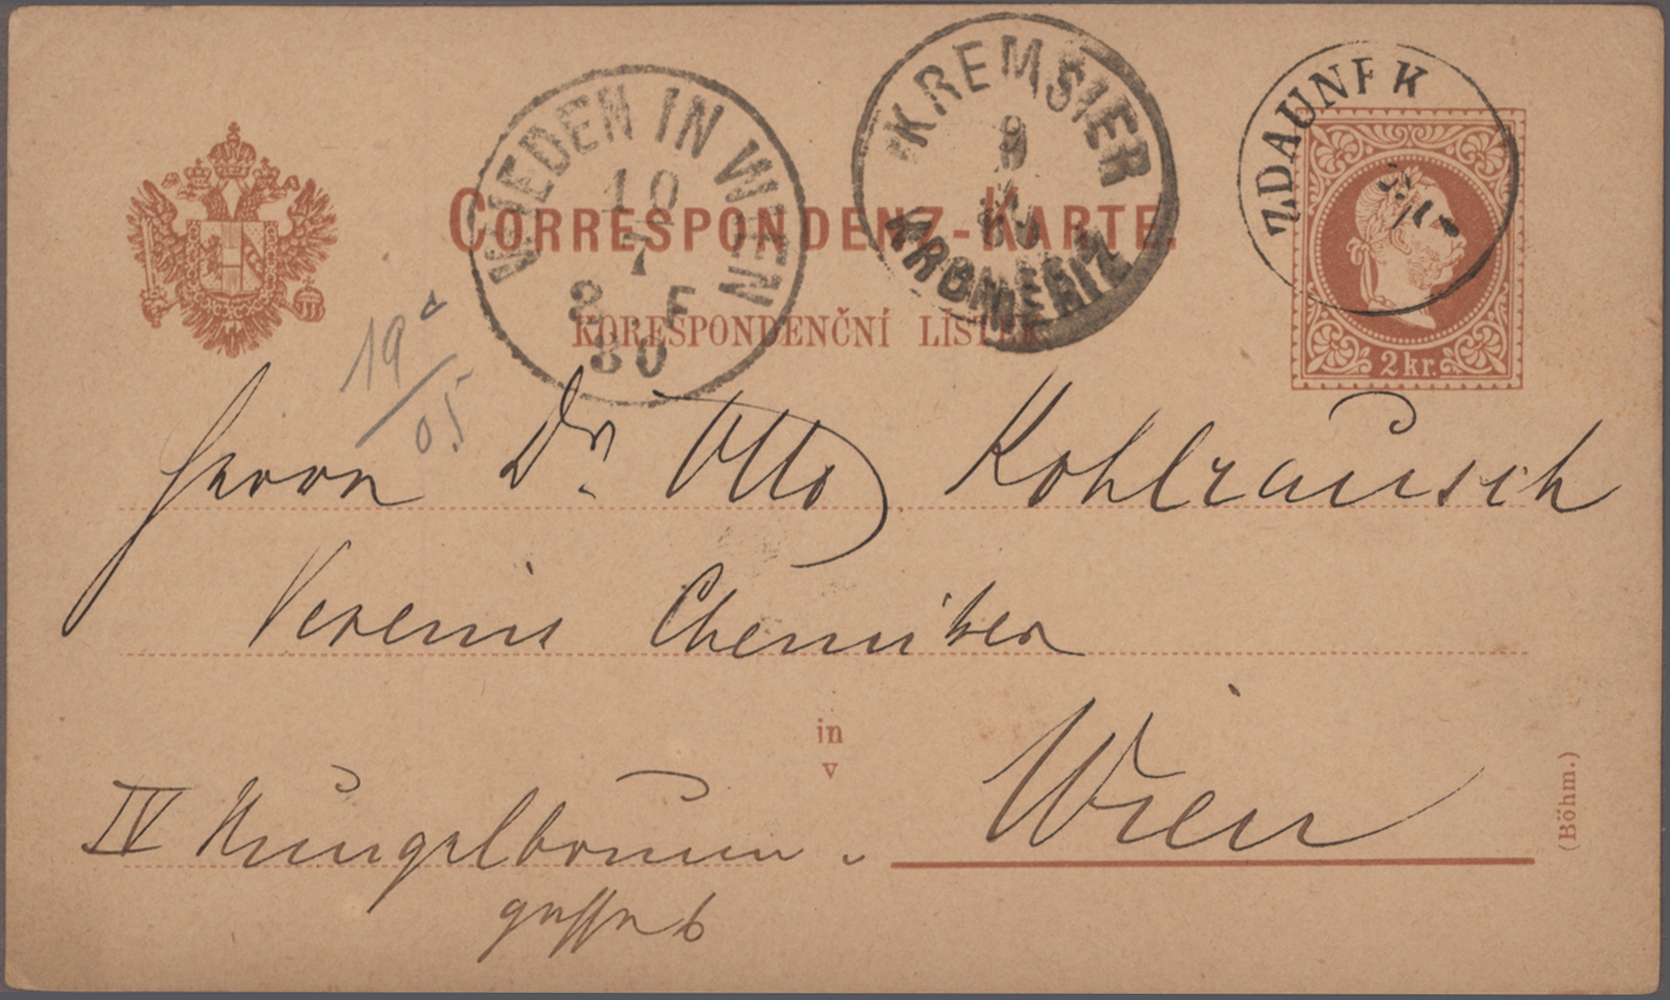 WIEDEN IN WIEN
10
7
8. F
80
KREMSIER
9
80
KROMĚŘÍŽ
ZDAUNEK
CORRESPONDENZ-KARTE.
KORESPONDENČNÍ LÍSTEK
2 kr.
19
05
Herrn Dr. Otto Kohlrausch
Vereins Chemiker
in
v
Wien
IV
gasse 6
(Böhm.)